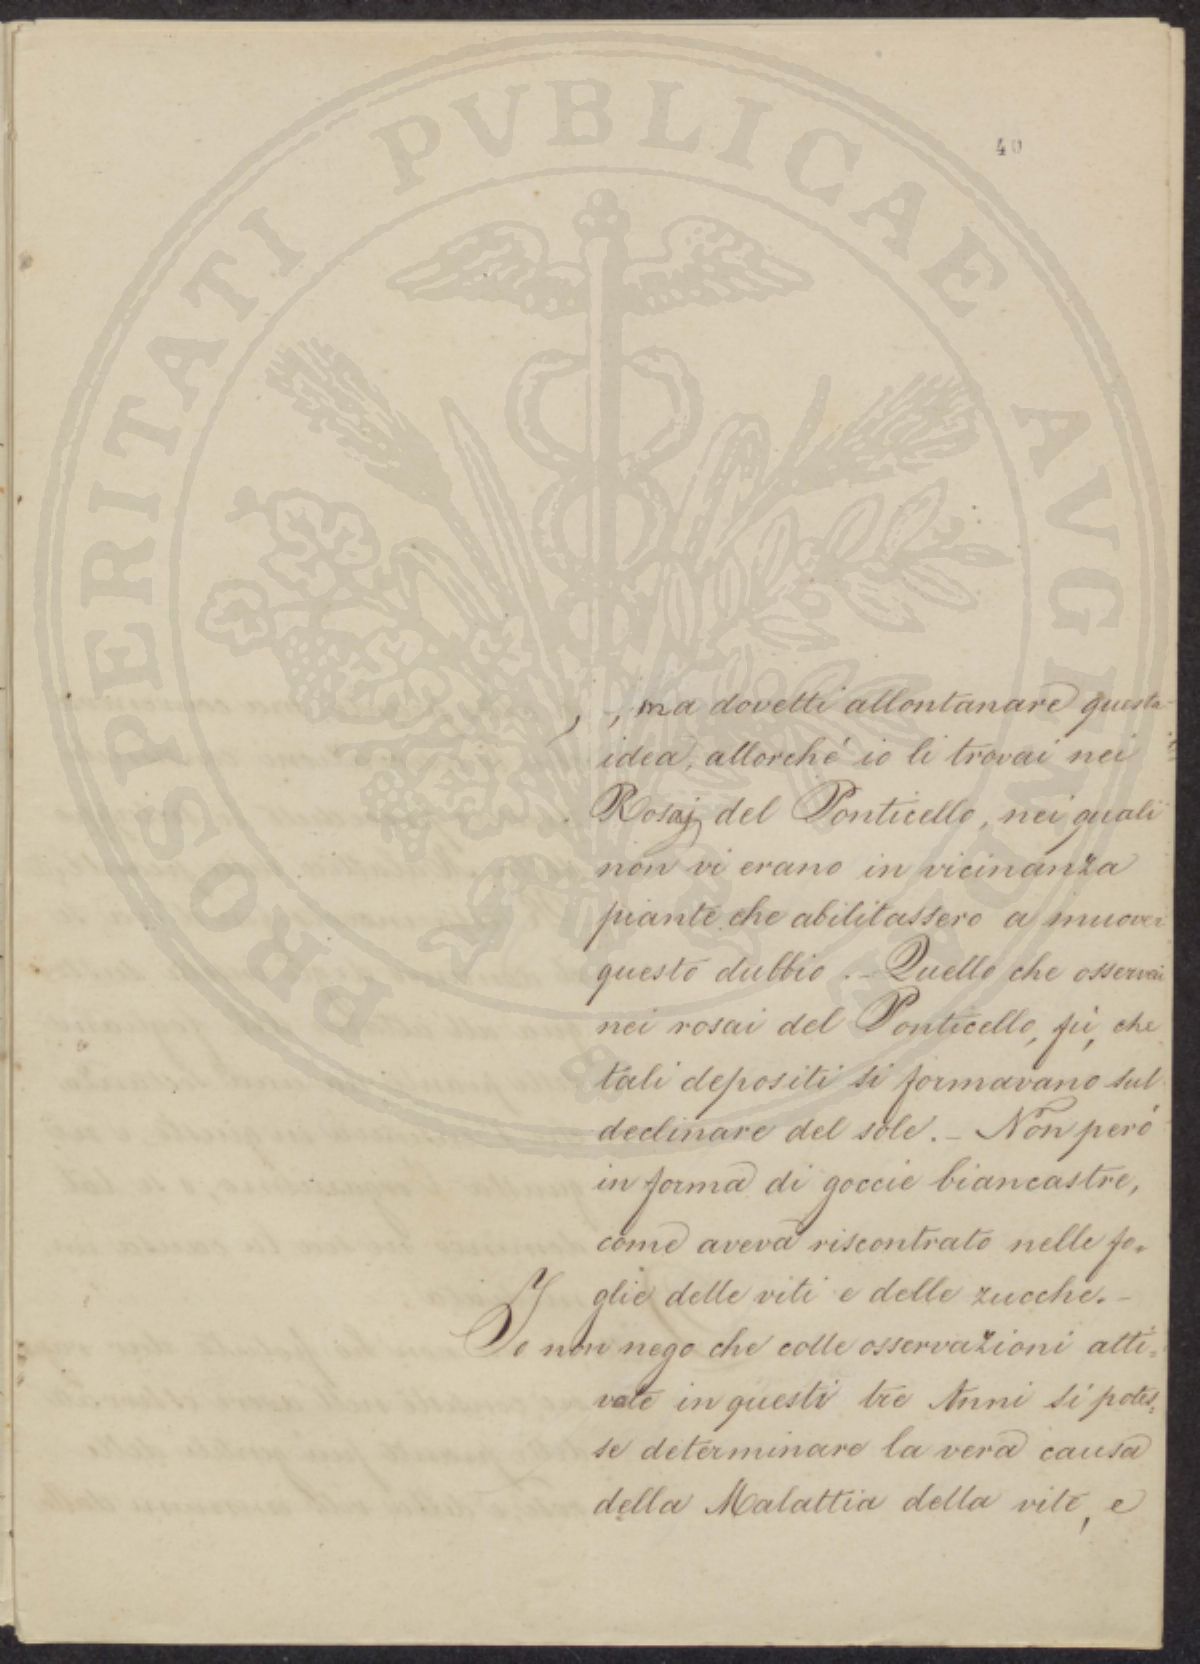 PROSPERITATI PUBLICAE AUGENDAE
40
, ma dovetti allontanare questa
idea, allorché io li trovai nei
Rosaj del Ponticello, nei quali
non vi erano in vicinanza
piante che abilitassero a muover
questo dubbio. – Quello che osservai
nei rosai del Ponticello, fù, che
tali depositi si formavano sul
declinare del sole. – Non però
in forma di goccie biancastre,
come aveva riscontrato nelle fo=
glie delle viti e delle zucche. –
Io non nego che colle osservazioni atti=
vate in questi tre Anni si potes=
se determinare la vera causa
della Malattia della vite, e